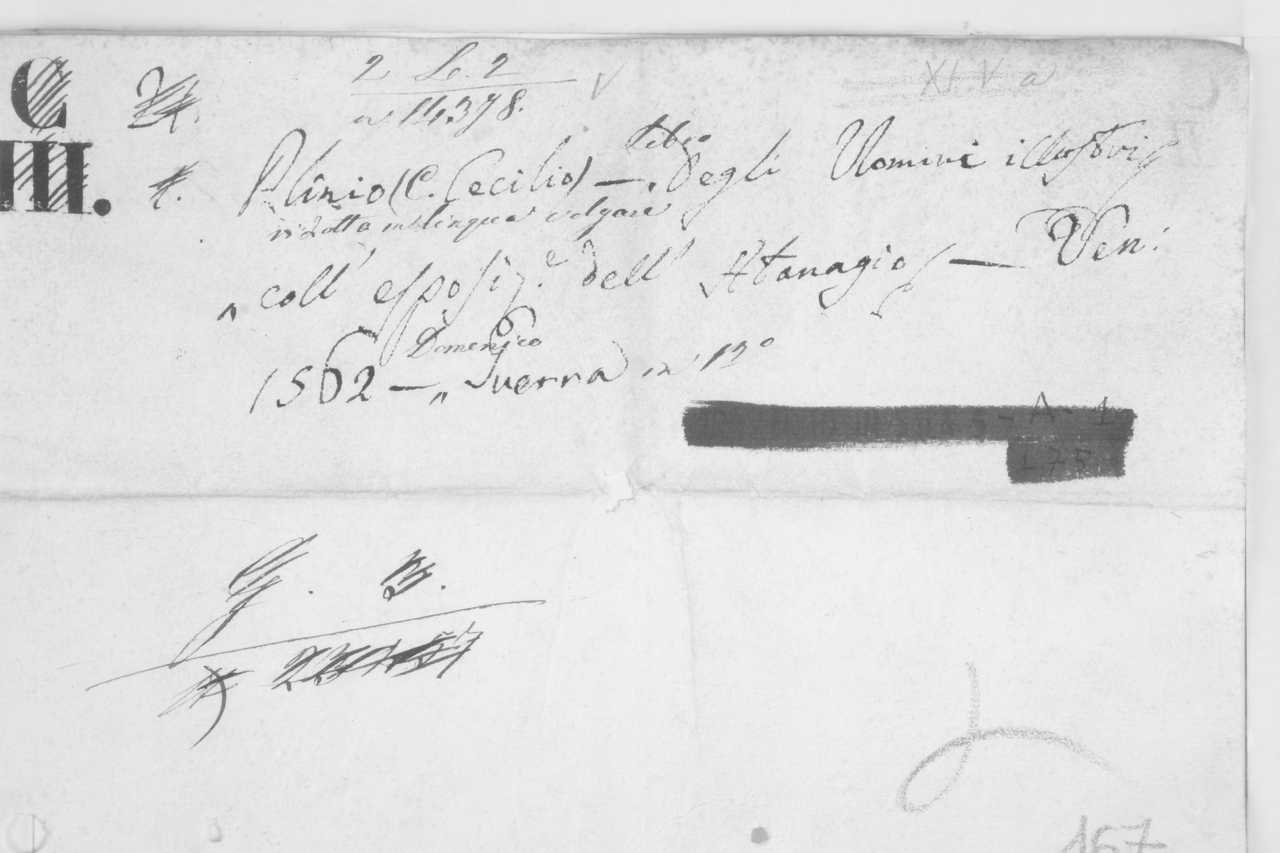 C
III.
2 Lo. 2
XLV a
14378.
Plinio (C. Cecilio) — Libro Degli Uomini illustri
ridotto in lingua volgare
coll' esposiz.e dell' Atanagio — Ven:
Domenico
1562 — Guerra in 12o
A - 1
175
G. 3.
167